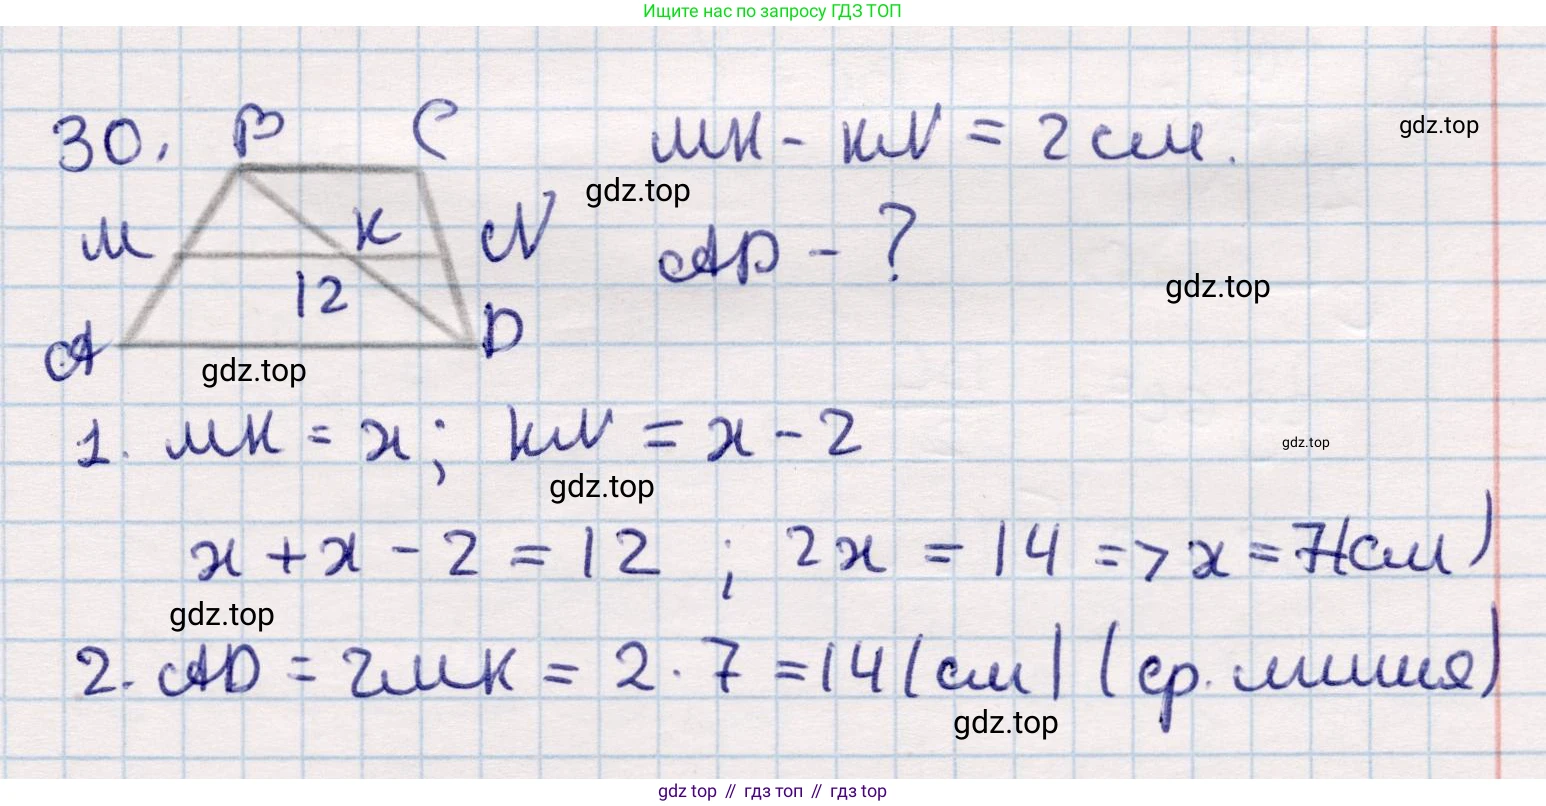 Ищите нас по запросу ГДЗ ТОП
30. B C MK - KN = 2 см.
gdz.top
gdz.top
M K N AD - ?
gdz.top
12
A D
gdz.top
1. MK = x; KN = x - 2
gdz.top
gdz.top
x + x - 2 = 12 ; 2x = 14 => x = 7(см)
gdz.top
2. AD = 2MK = 2 · 7 = 14(см) (ср. линия)
gdz.top
gdz top // гдз топ // гдз top